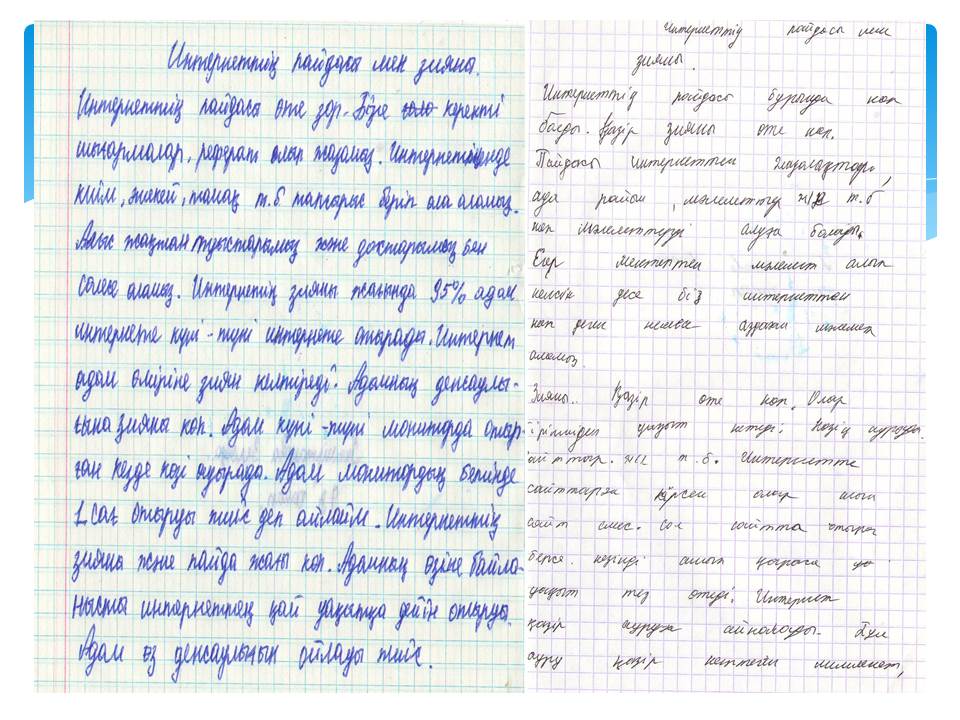 Интернеттің пайдасы мен зияны.
Интернеттің пайдасы өте зор. Бізге керекті
шығармалар, реферат алып жазамыз. Интернетіңде
киім, жикей, тамақ т.б тапсырыс беріп ала аламыз.
Алыс жақтан туыстарымыз және достарымыз бен
сөлесе аламыз. Интернетің зияны жағында 95% адам
интернете күні - түні интернете отырады. Интернет
адам өміріне зиян келтіреді. Адамның денсаулы-
ғына зияны көп. Адам күні - түні мониторда отыр-
ған кезде көзі ауырада. Адам монитордың бетінде
1 сағ отырды тиіс деп ойлайм. Интернеттің
зияны және пайда жағы көп. Адамның өзіне байла-
нысты интернеттең қай уақытқа дейін отыруы.
Адам өз денсаулығын ойлады тиіс.
Интернеттің пайдасы мен
зияны.
Интернеттің пайдасы бұрында көп
болды. Қазір зияны өте көп.
Пайдасы интернеттен
т.б
көп мәлеметтерді алуға болады.
Егер мектептен мәлемет алып
келсін десе біз интернеттен
көп деген немесе аздаған мәлемет
аламыз.
Зияны.. Қазір өте көп. Олар
уақыт кетеді. Көзің ауруды.
т.б. Интернетте
сайттарға кірсең олар
сайт емес. Сол сайтта отыра
берсе көзіңді алып қараса
уақыт тез өтеді. Интернет
қазір ауруға айналады. Бұл
ауру қазір көптеген мемлекет,